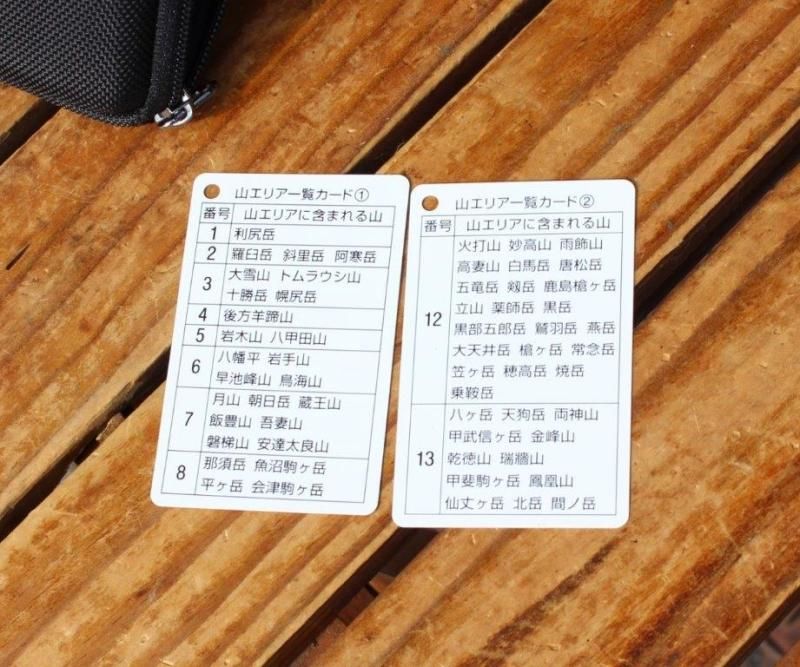 山エリア一覧カード①
番号 山エリアに含まれる山
1 利尻岳
2 羅臼岳 斜里岳 阿寒岳
3 大雪山 トムラウシ山
十勝岳 幌尻岳
4 後方羊蹄山
5 岩木山 八甲田山
6 八幡平 岩手山
早池峰山 鳥海山
7 月山 朝日岳 蔵王山
飯豊山 吾妻山
磐梯山 安達太良山
8 那須岳 魚沼駒ヶ岳
平ヶ岳 会津駒ヶ岳
山エリア一覧カード②
番号 山エリアに含まれる山
12 火打山 妙高山 雨飾山
高妻山 白馬岳 唐松岳
五竜岳 剱岳 鹿島槍ヶ岳
立山 薬師岳 黒岳
黒部五郎岳 鷲羽岳 燕岳
大天井岳 槍ヶ岳 常念岳
笠ヶ岳 穂高岳 焼岳
乗鞍岳
13 八ヶ岳 天狗岳 両神山
甲武信ヶ岳 金峰山
乾徳山 瑞牆山
甲斐駒ヶ岳 鳳凰山
仙丈ヶ岳 北岳 間ノ岳